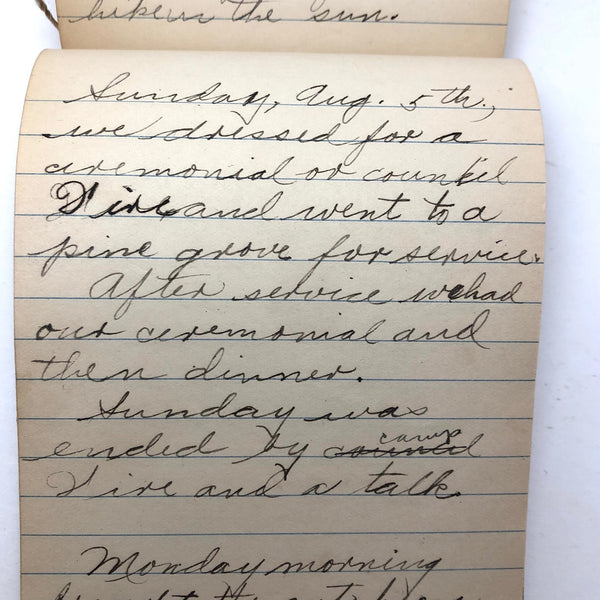 hike in the sun.
Sunday, Aug. 5th,
we dressed for a
ceremonial or counkil
Fire and went to a
pine grove for service.
After service we had
our ceremonial and
then dinner.
Sunday was
camp
ended by council
Fire and a talk
Monday morning